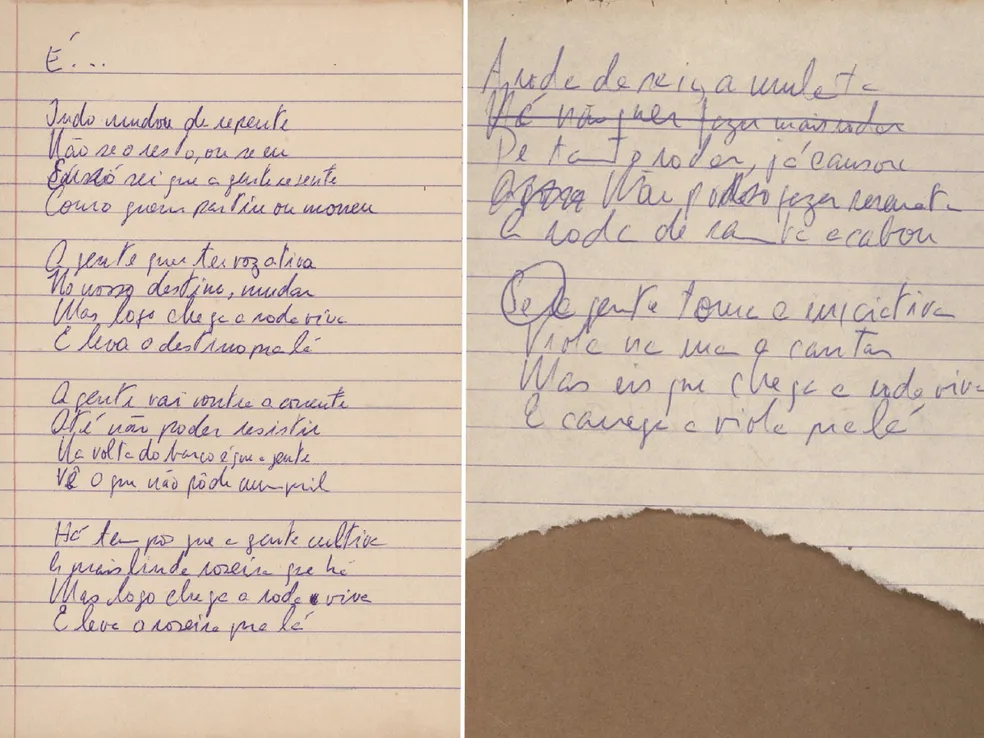 É...
Tudo mudou de repente
Não se o resto, ou se eu
Eu só sei que a gente se sente
Como quem partiu ou morreu
A gente quer ter voz ativa
No nosso destino, mudar
Mas logo chega a roda viva
E leva o destino pra lá
A gente vai contra a corrente
Até não poder resistir
Na volta do barco é que a gente
Vê o que não pôde cumpril
Há tempos que a gente cultiva
A mais linda roseira que há
Mas logo chega a roda viva
E leva a roseira pra lá
A roda de saia, a mulata
Já não quer fazer mais rodar
De tanto rodar, já cansou
Não posso fazer serenata
A roda de samba acabou
Se a gente toma a iniciativa
Viola na rua a cantar
Mas eis que chega a roda viva
E carrega a viola pra lá